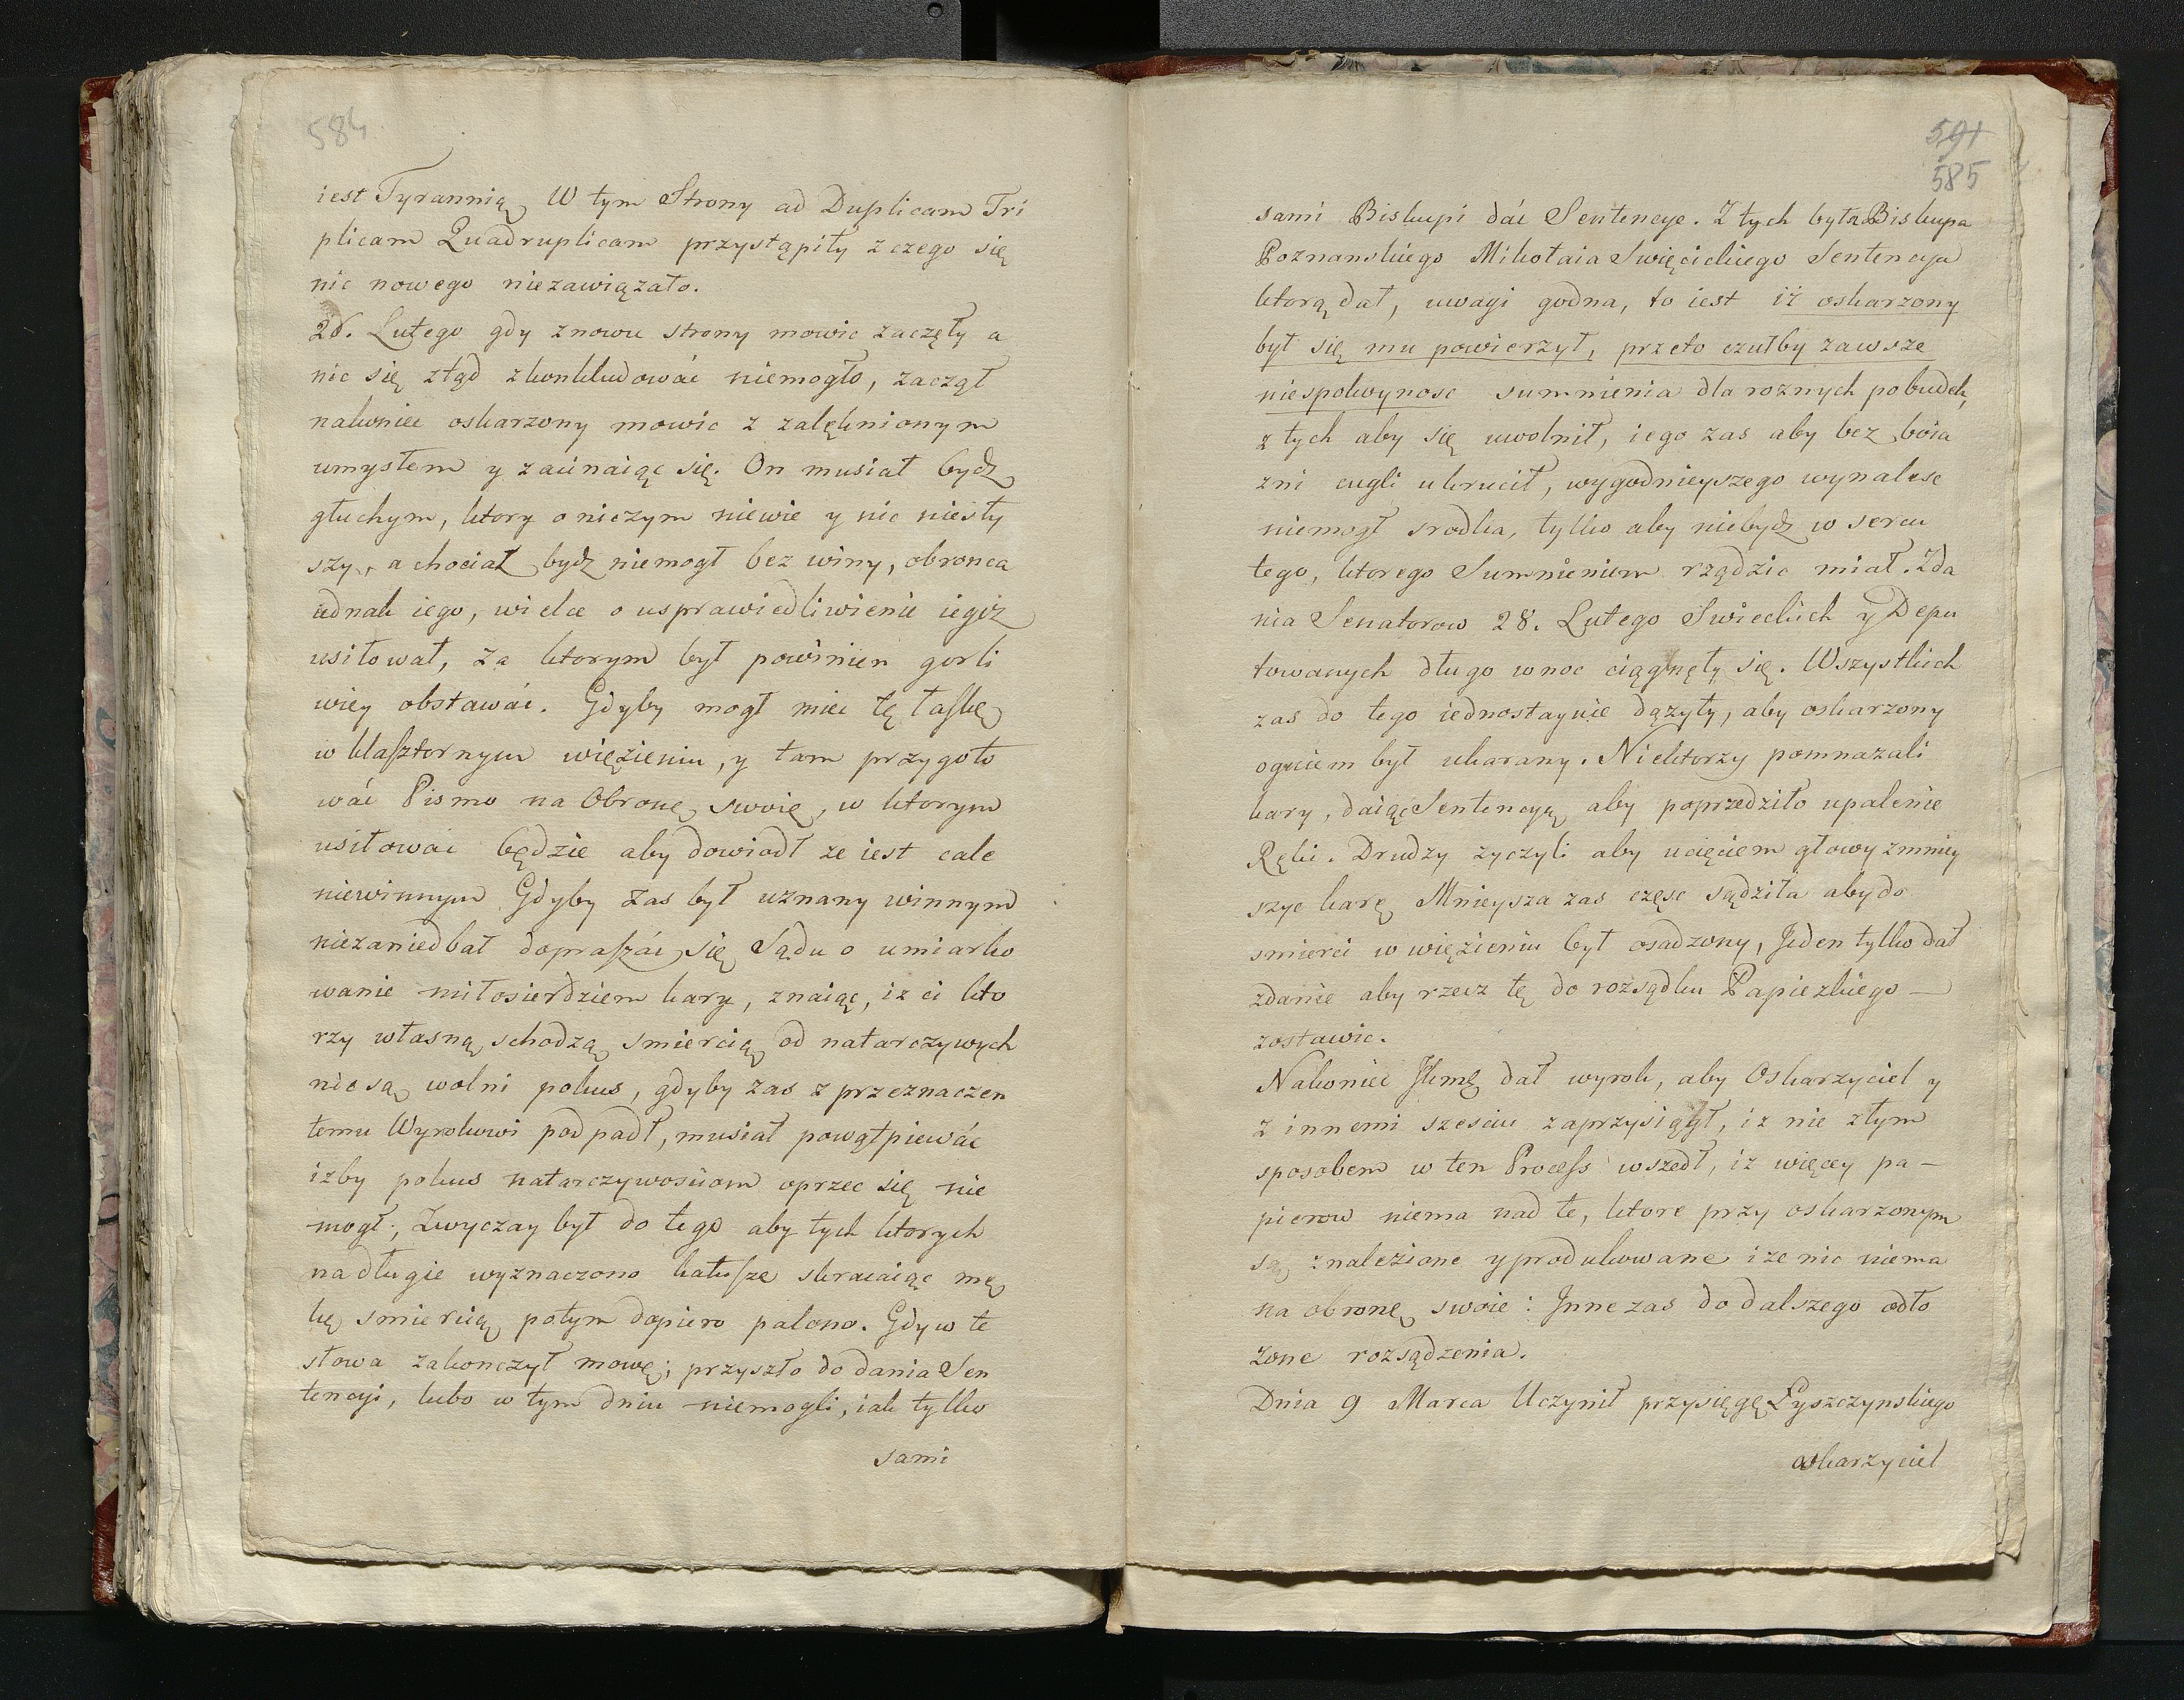 584
iest Tyrannią W tym Strony ad Duplicam Tri
plicam Quadruplicam przystąpiły z czego się
nic nowego niezawiązało.
26. Lutego gdy znowu strony mowic zaczęły a
nic się ztąd zkonkludowáć niemogło, zaczął
nakoniec oskarzony mowic z zalęknionym
umysłem y zacinaiąc się. On musiał bydz
głuchym, ktory o niczym niewie y nic niesły
szy, a chociaż bydz niemogł bez winy, obronca
iednak iego, wielce o usprawiedliwienie iegoż
usiłował, za ktorym był powinien gorli
wiey obstawáć. Gdyby mogł miec tę łaskę
w klasztornym więzieniu, y tam przygoto
wáć Pismo na Obronę swoię, w ktorym
usiłowac będzie aby dowiodł ze iest cale
niewinnym Gdyby zas był uznany winnym
niezaniedbał dopraszáć się Sądu o umiarko
wanie miłosierdziem kary, znaiąc, iz ci kto
rzy własną schodzą smiercią od natarczywych
nie są wolni pokus, gdyby zas z przeznaczen
temu Wyrokowi podpadł, musiał powątpiewáć
izby pokus natarczywosciom oprzec się nie
mogł; Zwyczay był do tego aby tych ktorych
na długie wyznaczono katusze skracaiąc mę
kę smiercią potym dopiero palono. Gdy w te
słowa zakonczył mowę; przyszło do dania Sen
tencyi, lubo w tym dniu niemogli, iak tylko
sami
591
585
sami Biskupi dáć Sentencye. Z tych była Biskupa
Poznanskiego Mikołaia Swięcickiego Sentencya
ktorą dał, uwagi godna, to iest iż oskarzony
był się mu powierzył, przeto czułby zawsze
niespokoynosc sumnienia dla roznych pobudek,
z tych aby się uwolnił, iego zas aby bez boia
zni cugli ukrucił, wygodnieyszego wynalesc
niemogł srodka, tylko aby niebydz w sercu
tego, ktorego Sumnieniem rządzic miał. Zda
nia Senatorow 28. Lutego Swieckich y Depu
towanych długo w noc ciągnęły się. Wszystkich
zas do tego iednostaynie dązyły, aby oskarzony
ogniem był ukarany. Niektorzy pomnazali
kary, daiąc Sentencyą aby poprzedziło upalenie
Ręki. Drudzy zyczyli aby ucięciem głowy zmniey
szyc karę Mnieysza zas częsc sądziła aby do
smierci w więzieniu był osadzony, Jeden tylko dał
zdanie aby rzecz tę do rozsądku Papiezkiego —
zostawic.
Nakoniec dał wyrok, aby Oskarzyciel y
z innemi szesciu zaprzysiągł, iz nie złym
sposobem w ten Process wszedł, iz więcey pa-
pierow niema nad te, ktore przy oskarzonym
są znalezione y produkowane i ze nic niema
na obronę swoie: Jnne zas do dalszego odło
zone rozsądzenia.
Dnia 9 Marca Uczynił przysięgę Łyszczynskiego
oskarzyciel